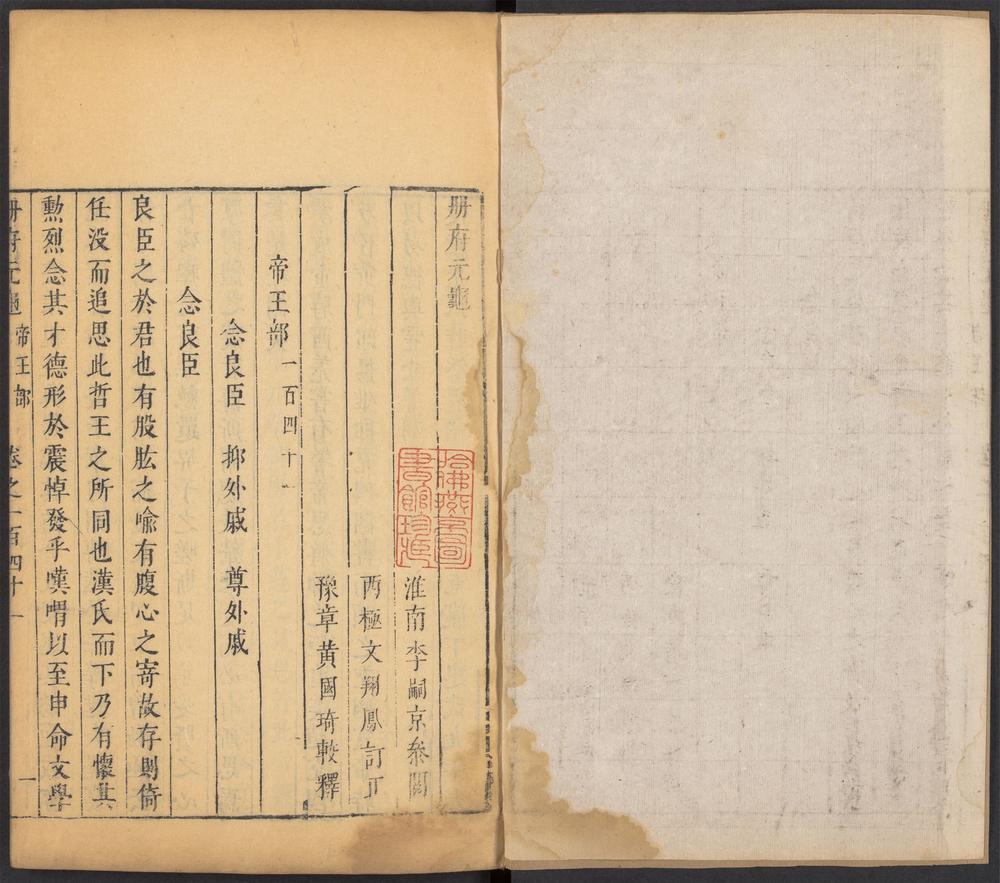 册府元龜
淮南李嗣京叅閱
西極文翔鳳訂正
豫章黄國琦較釋
帝王部 一百四十一
念良臣 抑外戚 尊外戚
念良臣
良臣之於君也有股肱之喻有腹心之寄故存則倚
任没而追思此哲王之所同也漢氏而下乃有懷其
勲烈念其才德形於震悼發乎嘆喟以至申命文學
册府元龜 帝王部 卷之一百四十一 一
哈佛燕京圖
書館珍藏